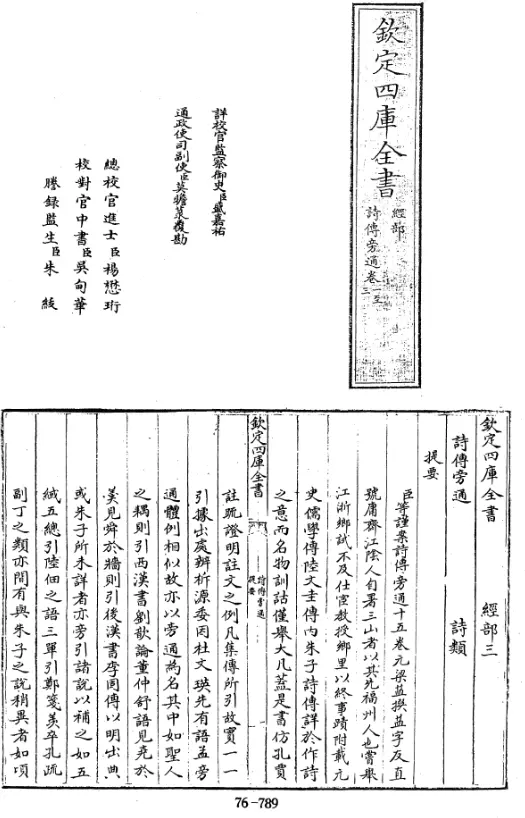 欽定四庫全書
經部
詩傳旁通卷一至三
詳校官監察御史臣戴嘉祐
通政使司副使臣莫瞻菉覆勘
總校官進士臣楊懋珩
校對官中書臣吳甸華
謄録監生臣朱綾
欽定四庫全書 經部三
詩傳旁通 詩類
提要
臣等謹案詩傳旁通十五卷元梁益撰益字友直
號庸齋江陰人自署三山者以其先福州人也嘗舉
江浙鄉試不及仕宦教授鄉里以終事蹟附載元
史儒學傳陸文圭傳内朱子詩傳詳於作詩
之意而名物訓詁僅舉大凡蓋是書仿孔賈
欽定四庫全書
詩傳旁通
提要
一
註疏證明註文之例凡集傳所引故實一一
引據出處辨析源委因杜文瑛先有語孟旁
通體例相似故亦以旁通為名其中如聖人
之耦則引西漢書劉歆論董仲舒語見堯於
羮見舜於牆則引後漢書李固傳以明出典
或朱子所未詳者亦旁引諸說以補之如五
緎五總引陸佃之語三單引鄭箋羡卒孔疏
副丁之類亦間有與朱子之說稍異者如頃
76-789